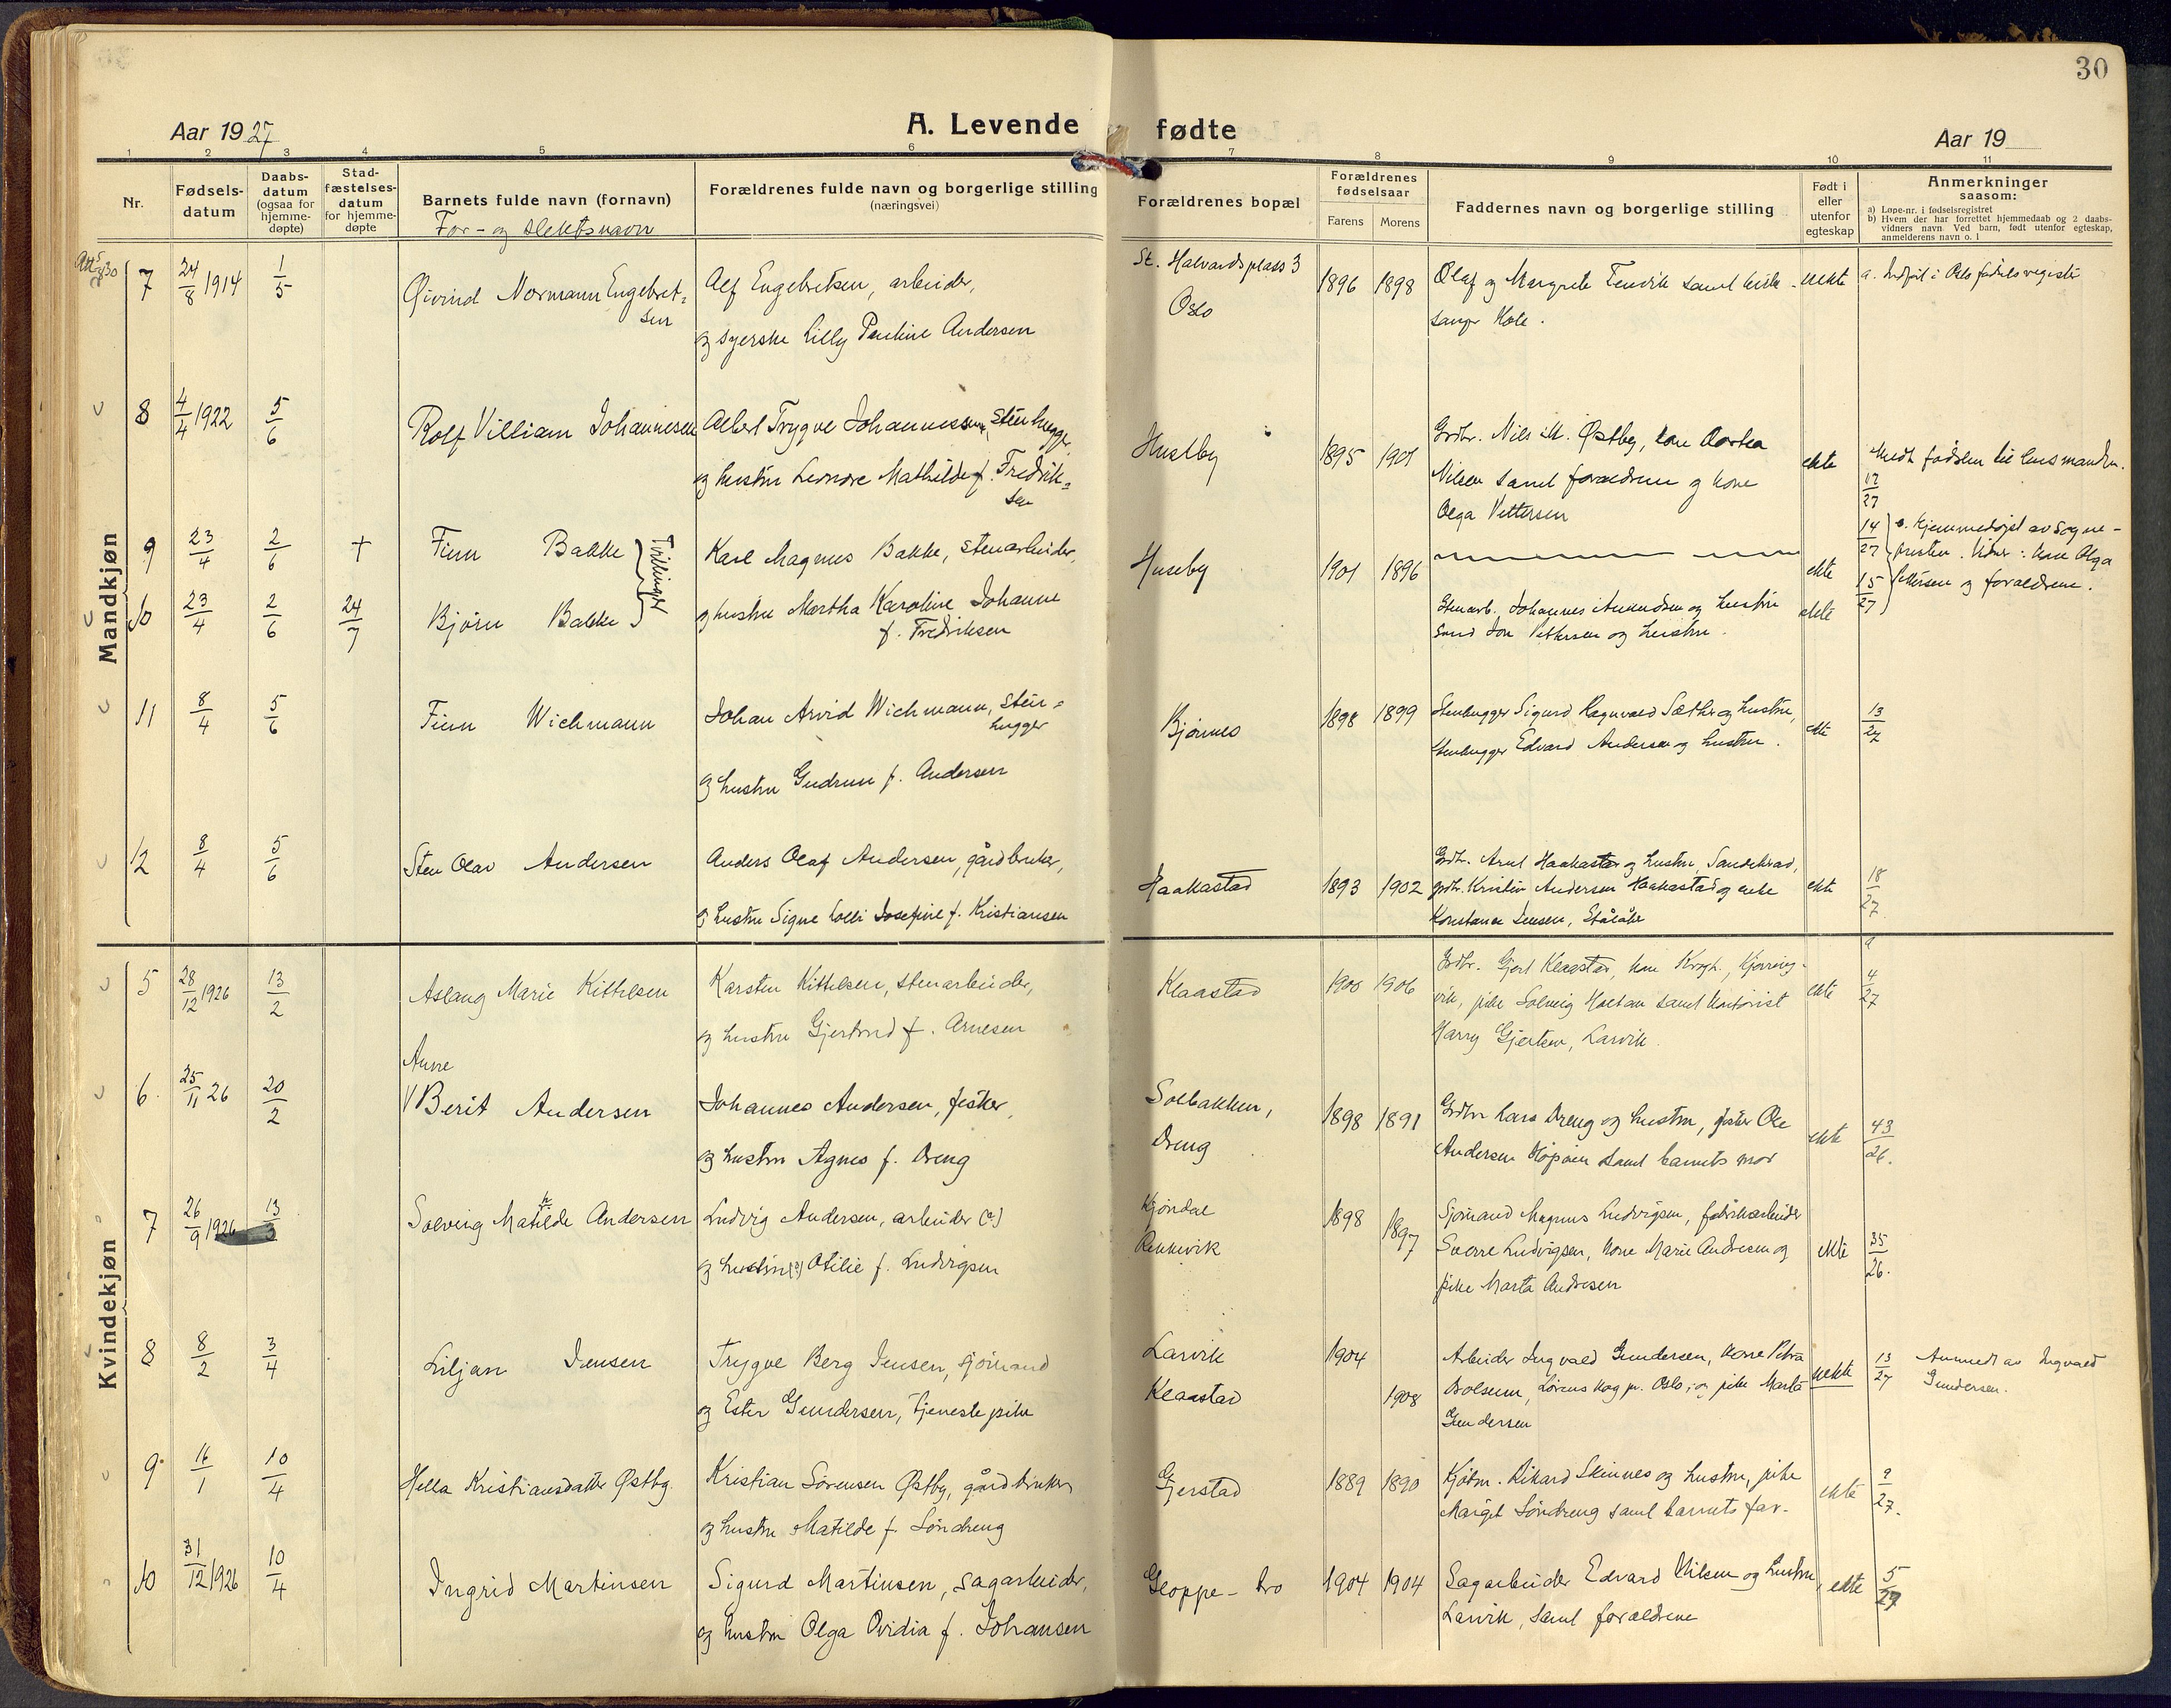 30
Aar 1927
A. Levende fødte
Aar 19
1 2 3 4 5 6 7 8 9 10 11
Nr.
Fødsels-
datum
Daabs-
datum
(ogsaa for
hjemme-
døpte)
Stad-
fæstelses-
datum
for hjemme-
døpte
Barnets fulde navn (fornavn)
For- og slektsnavn
Forældrenes fulde navn og borgerlige stilling
(næringsvei)
Forældrenes bopæl
Forældrenes
fødselsaar
Farens Morens
Faddernes navn og borgerlige stilling
Født i
eller
utenfor
egteskap
Anmerkninger
saasom:
a) Løpe-nr. i fødselsregistret
b) Hvem der har forrettet hjemmedaab og 2 daabs-
vidners navn. Ved barn, født utenfor egteskap,
anmelderens navn o. l
Mandkjøn
7 24/8 1914 1/5 Øivind Normann Engebret= Alf Engebretsen, arbeider, St. Halvards plass 3 1896 1898 Olaf og Margrete Fendik samt
sen og syerske Lilly Pauline Andersen Oslo Hole. uekte a. Indført i Oslo fødselsregister
8 4/4 1922 5/6 Rolf Villiam Johannesen Albert Trygve Johannessen, stenhugger, 1895 1901 Grdbr. Nils M. Østby, kone
og hustru Leonore Mathilde f. Fredrik= Nilsen samt forældrene og kone ekte Medt. fødslen til lensmanden.
sen Olga Pettersen 17/27
9 23/4 2/6 + Finn Bakke Karl Magnus Bakke, stenarbeider, Huseby 1901 1896 ekte 14/27 b. Hjemmedøpt av sogne-
Tvillinger presten. Vidner: kone Olga
10 23/4 2/6 24/7 Bjørn Bakke og hustru Martha Karoline Johanne Stenarb. Johannes Amundsen og hustru ekte 15/27 Pettersen og forældrene.
f. Fredriksen samt Jon Pettersen og hustru.
11 8/4 5/6 Finn Wichmann Johan Arvid Wichmann, sten= Bjørnes 1898 1899 Stenhugger Sigurd Ragnvald Sæther og hustru, ekte 13/27
hugger stenhugger Edvard Andersen og hustru.
og hustru Gudrun f. Andersen
12 8/4 5/6 Sten Olav Andersen Anders Olaf Andersen, gårdbruker, Haakastad 1893 1902 Grdbr. Arnt Haakastad og hustru,
og hustru Signe Lolli Josefine f. Kristiansen grdbr. Kristian Andersen Haakastad og enke ekte 18/27
Konstance Jensen,
Kvindekjøn
5 28/12 1926 13/2 Aslaug Marie Kittelsen Karsten Kittelsen, stenarbeider, Klaastad 1900 1906 Grdbr. Gjert Klaastad, kone
og hustru Gjertrud f. Arnesen pike Solveig Holtan samt kontorist ekte a 4/27
Harry Gjertsen, Larvik.
Anne
6. 25/11 26 20/2 Berit Andersen Johannes Andersen, fisker, Solbakken, 1898 1891 Grdbr Lars Dreng og hustru, fisker Ole
og hustru Agnes f. Dreng Dreng Andersen samt barnets mor ekte 43/26.
7 26/9 1926 13/3 Solveig Mathilde Andersen Ludvig Andersen, arbeider (a) Kjøndal 1898 1897 Sjømand Magnus Ludvigsen, fabrikarbeider
og hustru (a) Otilie f. Ludvigsen Rekkevik Sverre Ludvigsen, kone Marie Andresen og ekte 35/26.
pike Marta Andresen
8 8/2 3/4 Liljan Jensen Trygve Berg Jensen, sjømand Larvik 1904 Arbeider Ingvald Gundersen, kone Petra uekte 13/27 Anmeldt av Ingvald
og Ester Gundersen, tjenestepike Klaastad 1908 pr. Oslo, og pike Marta Gundersen.
Gundersen
9. 16/1 10/4 Hella Kristiansdatter Østby. Kristian Sørensen Østby, gårdbruker Gjerstad 1889 1890 Kjøbm. Rikard Skinnes og hustru, pike ekte 9/27.
og hustru Matilde f. Søndreng Margit Søndreng samt barnets far.
10 31/12 1926 10/4 Ingrid Martinsen Sigurd Martinsen, sagarbeider, Gloppe-bro 1904 1904 Sagarbeider Edvard Nilsen og hustru, ekte 5/27
og hustru Olga Ovidia f. Johansen Larvik, samt forældrene